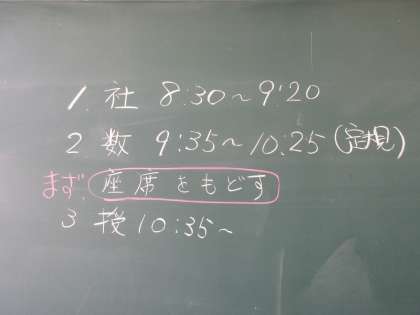 1. 社 8:30～9:20
2 数 9:35～10:25(定規)
まず 座席をもどす
3 授 10:35～